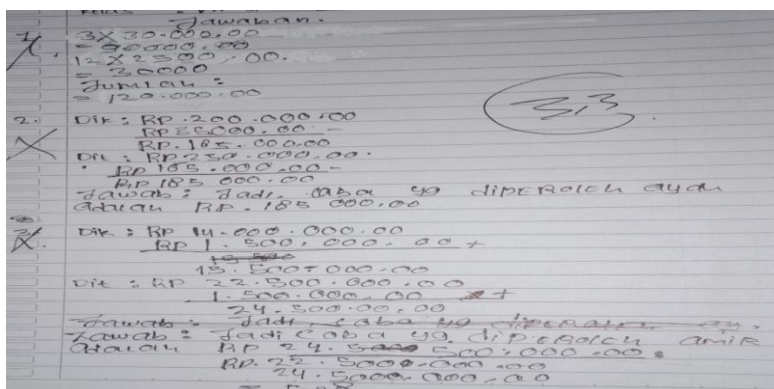 Jawaban.
1. 3 X 30.000.00
= 90000.00
12 X 2500.00.
= 30000
Jumlah :
= 120.000.00
3,3
2. Dik : RP.200.000.00
RP 35000.00 -
RP.165.000.00
Dit : RP 250.000.00.
RP 165.000.00 -
RP 185 000.00
Jawab : Jadi, Laba yg diperoleh ayah
adalah RP.185 000.00
3. Dik : RP 14.000.000.00
RP 1.500.000.00 +
15.500.000.00
Dit : RP 22.500.000.00
1.500.000.00 +
24.500.00.00
Jawab : Jadi, Laba yg diperoleh
Jawab : Jadi Laba yg diperoleh amir
adalah RP 24.500.000.00.
RP.22.5000.000.00
24.5000.000.00